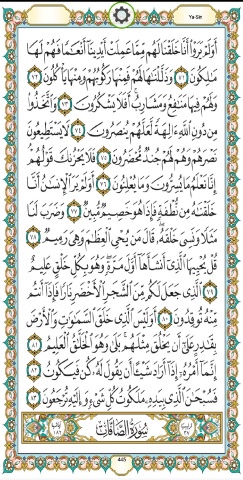 Ya-Sin
أَوَلَمْ يَرَوْا أَنَّا خَلَقْنَا لَهُم مِّمَّا عَمِلَتْ أَيْدِينَا أَنْعَامًا فَهُمْ لَهَا
مَالِكُونَ ٧١ وَذَلَّلْنَاهَا لَهُمْ فَمِنْهَا رَكُوبُهُمْ وَمِنْهَا يَأْكُلُونَ ٧٢
وَلَهُمْ فِيهَا مَنَافِعُ وَمَشَارِبُ أَفَلَا يَشْكُرُونَ ٧٣ وَاتَّخَذُوا
مِن دُونِ اللَّهِ آلِهَةً لَّعَلَّهُمْ يُنصَرُونَ ٧٤ لَا يَسْتَطِيعُونَ
نَصْرَهُمْ وَهُمْ لَهُمْ جُندٌ مُّحْضَرُونَ ٧٥ فَلَا يَحْزُنكَ قَوْلُهُمْ
إِنَّا نَعْلَمُ مَا يُسِرُّونَ وَمَا يُعْلِنُونَ ٧٦ أَوَلَمْ يَرَ الْإِنسَانُ أَنَّا
خَلَقْنَاهُ مِن نُّطْفَةٍ فَإِذَا هُوَ خَصِيمٌ مُّبِينٌ ٧٧ وَضَرَبَ لَنَا
مَثَلًا وَنَسِيَ خَلْقَهُ قَالَ مَن يُحْيِي الْعِظَامَ وَهِيَ رَمِيمٌ ٧٨
قُلْ يُحْيِيهَا الَّذِي أَنشَأَهَا أَوَّلَ مَرَّةٍ وَهُوَ بِكُلِّ خَلْقٍ عَلِيمٌ
٧٩ الَّذِي جَعَلَ لَكُم مِّنَ الشَّجَرِ الْأَخْضَرِ نَارًا فَإِذَا أَنتُم
مِّنْهُ تُوقِدُونَ ٨٠ أَوَلَيْسَ الَّذِي خَلَقَ السَّمَاوَاتِ وَالْأَرْضَ
بِقَادِرٍ عَلَىٰ أَن يَخْلُقَ مِثْلَهُم بَلَىٰ وَهُوَ الْخَلَّاقُ الْعَلِيمُ ٨١
إِنَّمَا أَمْرُهُ إِذَا أَرَادَ شَيْئًا أَن يَقُولَ لَهُ كُن فَيَكُونُ ٨٢
فَسُبْحَانَ الَّذِي بِيَدِهِ مَلَكُوتُ كُلِّ شَيْءٍ وَإِلَيْهِ تُرْجَعُونَ ٨٣
سُورَةُ الصَّافَّاتِ
445